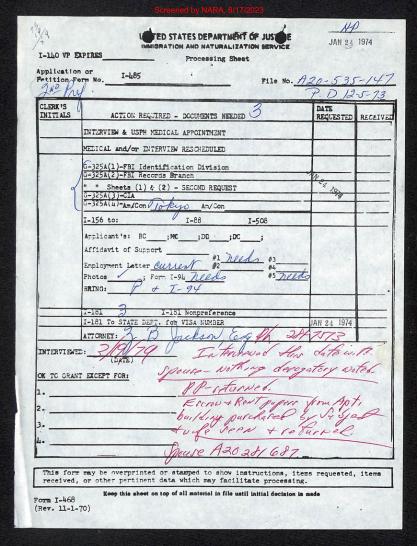 Screened by NARA, 8/17/2023
NP
UNITED STATES DEPARTMENT OF JUSTICE
IMMIGRATION AND NATURALIZATION SERVICE
JAN 24 1974
I-140 VP EXPIRES
Processing Sheet
Application or
Petition Form No. I-485
File No. A20-535-147
P.D 12-5-73
CLERK'S INITIALS
ACTION REQUIRED - DOCUMENTS NEEDED 3
DATE REQUESTED
RECEIVED
INTERVIEW & USPH MEDICAL APPOINTMENT
MEDICAL and/or INTERVIEW RESCHEDULED
G-325A(1)-FBI Identification Division
G-325A(2)-FBI Records Branch
" " Sheets (1) & (2) - SECOND REQUEST
G-325A(3)-CIA
G-325A(4)-Am/Con Tokyo Am/Con
JAN 24 1974
I-156 to: I-88 I-508
Applicant's: BC ;MC ;DD ;DC ;
Affidavit of Support
Employment Letter current #1 needs #3
#2 #4
Photos ; Form I-94 needs #5 needs
BRING: P + I-94
I-181 3 I-151 Nonpreference
I-181 To STATE DEPT. for VISA NUMBER JAN 24 1974
ATTORNEY: Z B Jackson Esq Ph 284-7573
INTERVIEWED:
(DATE)
Interviewed this date
spouse - nothing derogatory noted.
OK TO GRANT EXCEPT FOR:
PP returned.
1.
Escrow & Rent papers from Apt.
2.
building purchased by Subject
3.
& wife seen & returned.
4.
Spouse A20 281 687
This form may be overprinted or stamped to show instructions, items requested, items
received, or other pertinent data which may facilitate processing.
Keep this sheet on top of all material in file until initial decision is made
Form I-468
(Rev. 11-1-70)